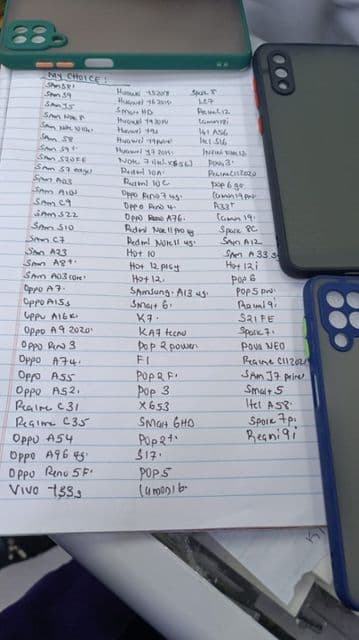 MY CHOICE:
Sam S8+ Huawei Y5 2018 Spark 8
Sam S9 Huawei Y6 2018 LC7
Sam J5 Smart HD Realme C12
Sam Note 8 Huawei Y9 2018 Camon 18i
Huawei Y9s Itel A56
Sam S8 Huawei Itel S16
Sam S9+ Huawei Y7 2019
Sam S20 FE Note 7 Pova 3.
Sam S7 edge Redmi 10A. Realme C11 2020
Sam A03 Redmi 10C Pop 6 go
Sam A10s Oppo Reno 7 4g. Camon 19 pro
Sam C9 Oppo Reno 4. A33T
Sam S22 Oppo Reno A76. Camon 19.
Sam S10 Redmi Note 11 pro 4g Spark 8C
Sam C7 Redmi Note 11 4g. Sam A12
Sam A23 Hot 10 Sam A33 5g
Sam A8+. Hot 12 play Hot 12i
Sam A03 core. Hot 12. Pop 6
Oppo A7. Samsung. A13 4g. Pop 5 pro.
Oppo A15s Smart 6. Redmi 9i
Oppo A16k. K7. S21 FE
Oppo A9 2020. KA7 tecno Spark 7.
Oppo Reno 3 Pop 2 power. Pova NEO
Oppo A74. F1 Realme C11 2021
Oppo A55 Pop 2 F. Sam J7 prime
Oppo A52. Pop 3 Smart 5
Realme C31 X653 Itel A58.
Realme C35 Smart 6HD Spark 7p.
Oppo A54 Pop 2+. Redmi 9i
Oppo A96 4g. S17.
Oppo Reno 5F. Pop 5
Vivo Y33s Camon 16